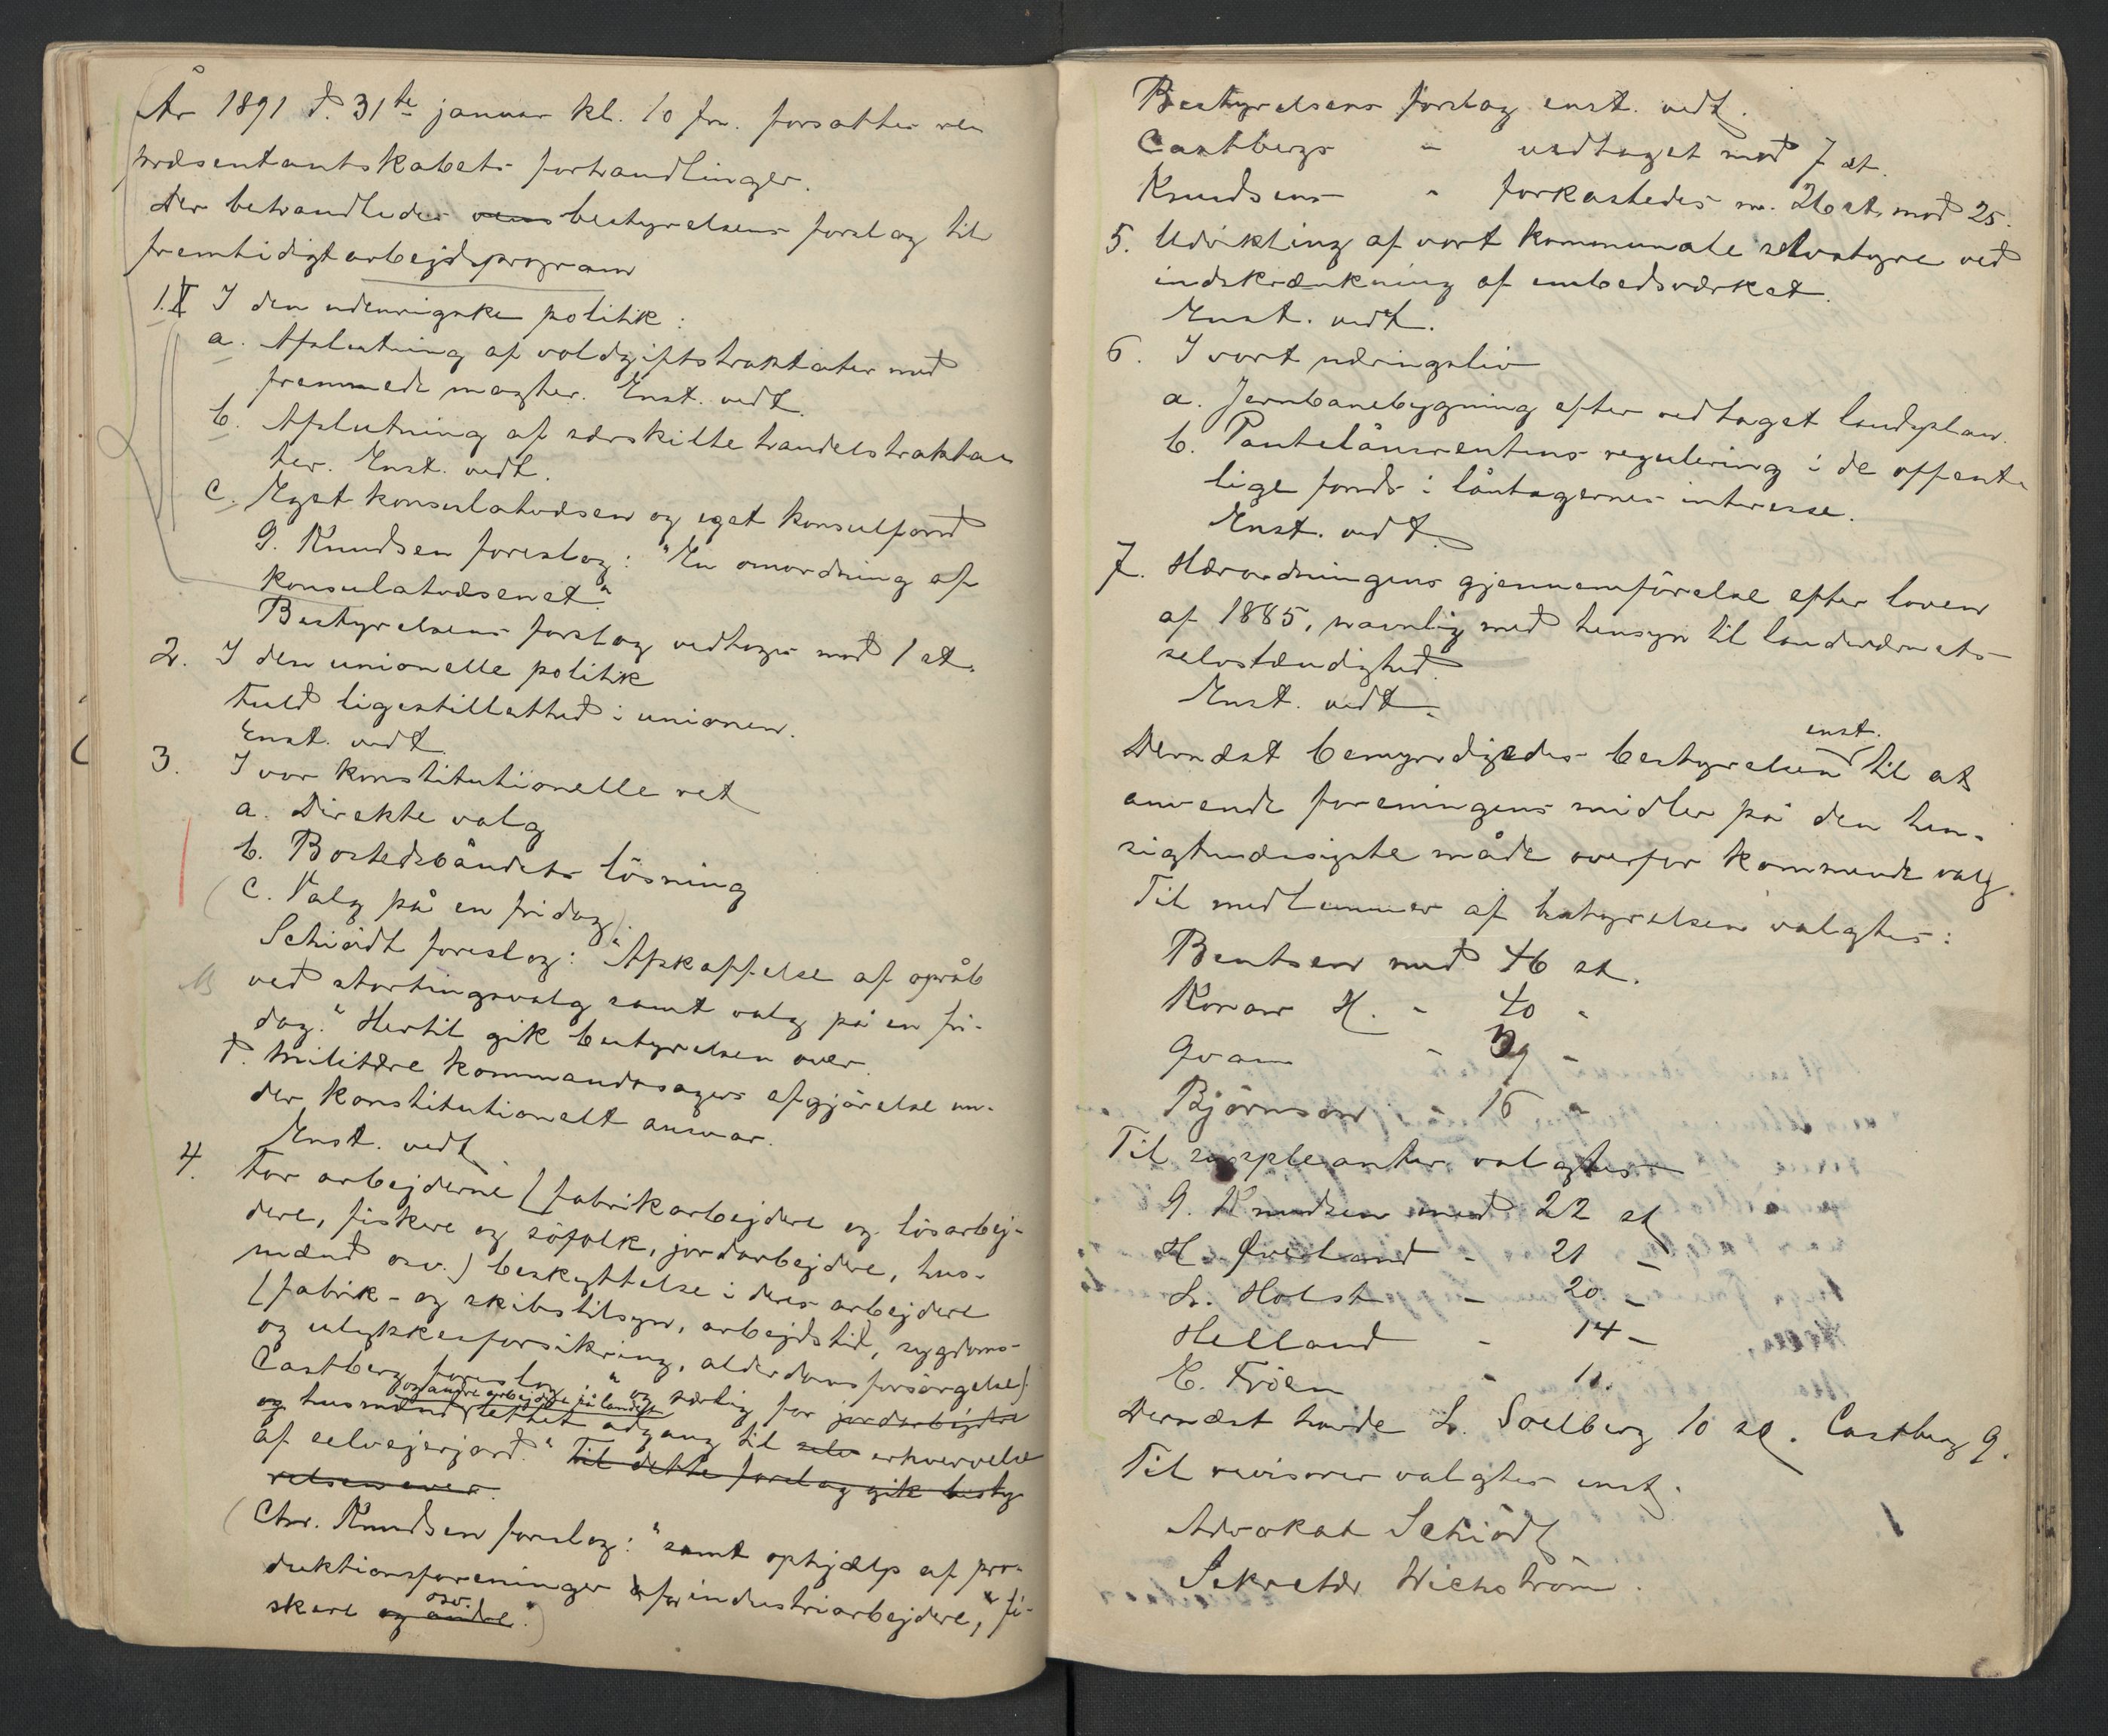 År 1891 d. 31te januar kl. 10 fm. forsattes re
præsentantskabets forhandlinger.
Der behandledes bestyrelsens forslag til
fremtidigt arbejdsprogram
1. I den udenrigske politik:
a. Afslutning af voldgiftstraktater med
fremmede magter. Enst. vedt.
b. Afslutning af særskilte handelstrakta
ter. Enst. vedt.
c. Eget konsulatvæsen og eget konsulfond
G. Knudsen foreslog: "En omordning af
konsulatvæsenet."
Bestyrelsens forslag vedtoges mod 1 st.
2. I den unionelle politik
Fuld ligestillethed i unionen.
Enst. vedt.
3. I vor konstitutionelle ret
a. Direkte valg
b. Bostedsbåndets løsning
(c. Valg på en fridag)
Schiødt foreslog: "Afskaffelse af opråb
ved stortingsvalg samt valg på en fri-
dag." Hertil gik bestyrelsen over.
d. Militære kommandosagers afgjørelse un-
der konstitutionelt ansvar.
Enst. vedt.
4. For arbejderne (fabrikarbejdere og løsarbej-
dere, fiskere og søfolk, jordarbejdere, hus-
mænd osv.) beskyttelse i deres arbejdere
(fabrik- og skibstilsyn, arbejdstid, sygdoms-
og ulykkesforsikring, alderdomsforsørgelse)
Castberg foreslog: "og særlig for jordarbejdere
og andre arbejdere på landet
og husmænd lettet adgang til selv erhvervelse
af selvejerjord." Til dette forslag gik besty
relsen over.
(Chr. Knudsen foreslog: "samt ophjælp af pro-
duktionsforeninger for industriarbejdere, fi-
osv.
skere og andre.")
Bestyrelsens forslag enst. vedt.
Castbergs " vedtaget mod 7 st.
Knudsens " forkastedes m. 26 st. mod 25.
5. Udvikling af vort kommunale selvstyre ved
indskrænkning af embedsværket.
Enst. vedt.
6. I vort næringsliv
a. Jernbanebygning efter vedtaget landsplan.
b. Pantelånsrentens regulering i de offent-
lige fonds i låntagernes interesse.
Enst. vedt.
7. Hærordningens gjennemførelse efter loven
af 1885, navnlig med hensyn til landeværnets
selvstændighed.
Enst. vedt.
enst.
Dernæst bemyndigedes bestyrelsen til at
anvende foreningens midler på den hen-
sigtsmæssigste måde overfor kommende valg.
Til medlemmer af bestyrelsen valgtes:
Bentsen med 46 st.
Konow H. - 40 -
Qvam - 39 -
Bjørnson - 16 -
Til suppleanter valgtes
G. Knudsen med 22 st
H. Øverland - 21 -
L. Holst - 20 -
Helland - 14 -
C. Frøen - 11.
Dernæst havde L. Solberg 10 st. Castberg 9.
Til revisorer valgtes enst.
Advokat Schiødt
Sekretær Wichstrøm.